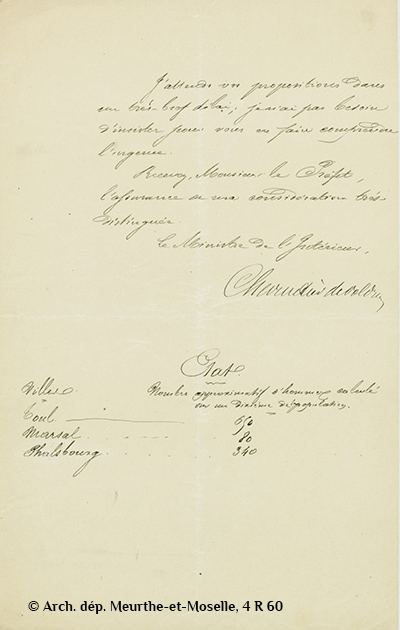 J'attends vos propositions dans
un très-bref délai; je n'ai pas besoin
d'insister pour vous en faire comprendre
l'urgence.
Recevez, Monsieur le Préfet,
l'assurance de ma considération très-
distinguée.
Le Ministre de l'Intérieur,
Chevandier de Valdrôme
Etat
Villes. Nombre approximatif d'hommes calculé
sur un dixième de population.
Toul 650
Marsal 80
Phalsbourg 340
© Arch. dép. Meurthe-et-Moselle, 4 R 60